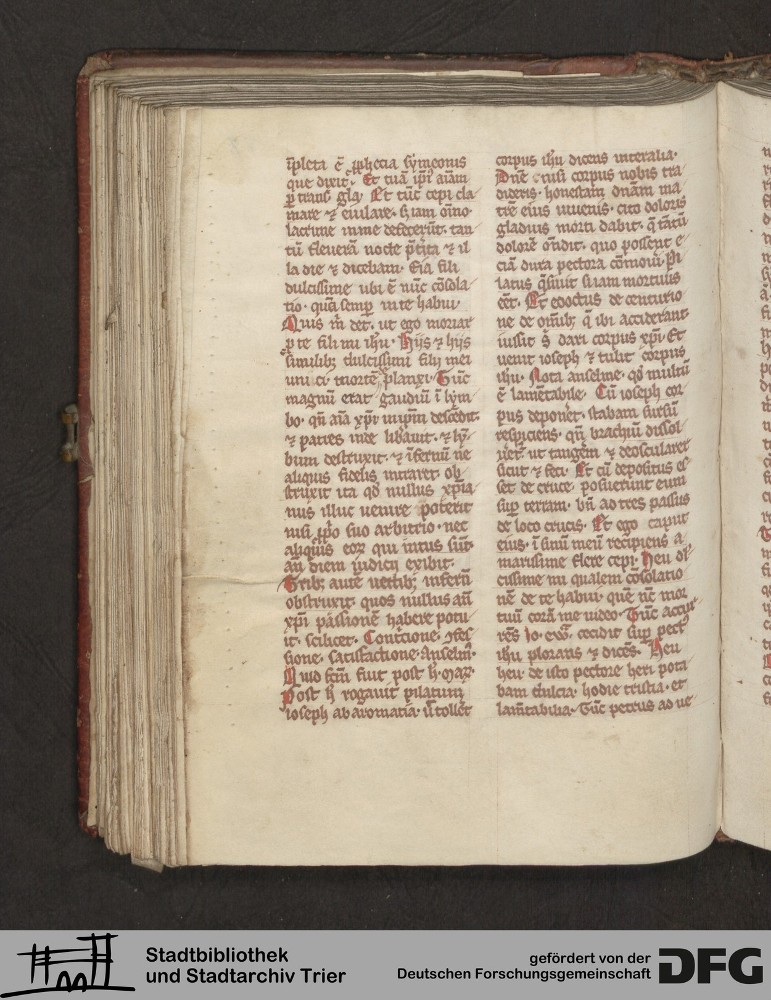 īpleta ē ꝓphecia symeonis
que dixit· Et tuā ip̄i aīam
ꝑtransᷣ glaꝰ Et tūc cepi cla
mare ⁊ eiulare· s; iam oīno
lacrime in me defecerūt· tan
tū fleuerā nocte p̄cīta ⁊ il
la die ⁊ dicebam· Eia fili
dulcissime ubi ē nūc cōsola
tio· quā semꝑ in te habui·
Quis m̄ det· ut ego moriar
ꝓ te fili mi ihū· Hijs ⁊ hijs
similibꝰ dulcissimi filij mei
uni ci mortē planxi· Tūc
magnū erat gaudiū ī lym
bo· qn̄ aīa xp̄i in ip̄m descēdit·
⁊ patres inde libauit· ⁊ ly̅
bum destruxit· ⁊ īfernū ne
aliquis fidelis intraret ob
struxit ita qd̓ nullus xp̄ia
nus illuc uenire poterit
nisi ꝓpo suo arbitrio· nec
aliquis eoꝝ qui intus sūt·
an̄ diem iudicij exibit·
Tribꝫ autē uectibꝫ infern̄
obstruxit· quos nullus an̄
xp̄i passionē habere potu
it· scilicet· Cont̓icione· ꝯfes
sione· satisfactione· Anselm̓·
Quid fcm̄ fuit post h̓· mar̓·
Post h̓ rogauit pilatum
ioseph ab aromatīa· ut tollet̓
corpus ihū dicens inter alia·
Dn̄e nisi corpus nobis tra
dideris· honestam dn̄am ma
trē eius uiuenᷤ· cito doloris
gladius morti dabit· q̄ tātū
dolorē oñdit· quo possent e
ciā dura pectora cōmoui· Pi
latus q̄siuit si iam mortuus
eēt· Et edoctus de centurio
ne de oīnibꝰ q̄ ibi acciderant·
iussit s̓ dari corpus xp̄i· Et
uenit ioseph ⁊ tulit corpus
ihū· Nota anselme· qd̓ multū
ē lamētabile· Cū ioseph cor
pus deponer̓· stabam sursū
respiciens· qn̄ brachiū dissol
uer̓t· ut tangerē ⁊ deoscularer
sicut ⁊ feci· Et cū depositus es
set de cruce posuerunt eum
suꝑ terram· bn̄ ad tres passus
de loco crucis· Et ego caput
eius· ī sinū meū recipiens a
marissime flere cepi· Heu dl̓
cissime mi qualem cōsolatio
nē de te habui· que nē mor
tuū corā me uideo· Tūc accur
rēs Io· ewā· cecidit suꝑ pect̓
ihū plorans ⁊ dicēs· Heu
heu· de isto pectore heri pota
bam dulcia· hodie tristia· et
lamētabilia· Tūc petrus ad ue
Stadtbibliothek
und Stadtarchiv Trier
gefördert von der
Deutschen Forschungsgemeinschaft
DFG